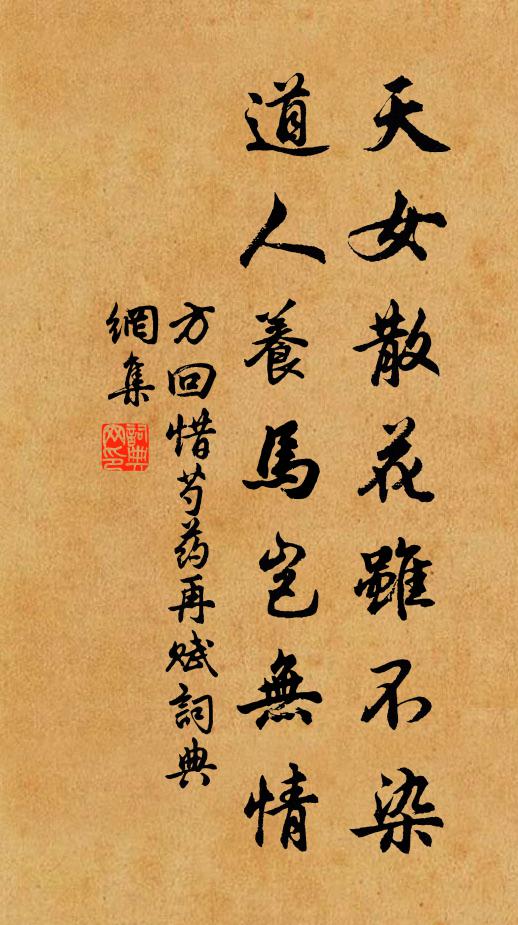 天女散花雖不染
道人養馬豈無情
方回惜芍药再赋詞典
網集
詞典
网印